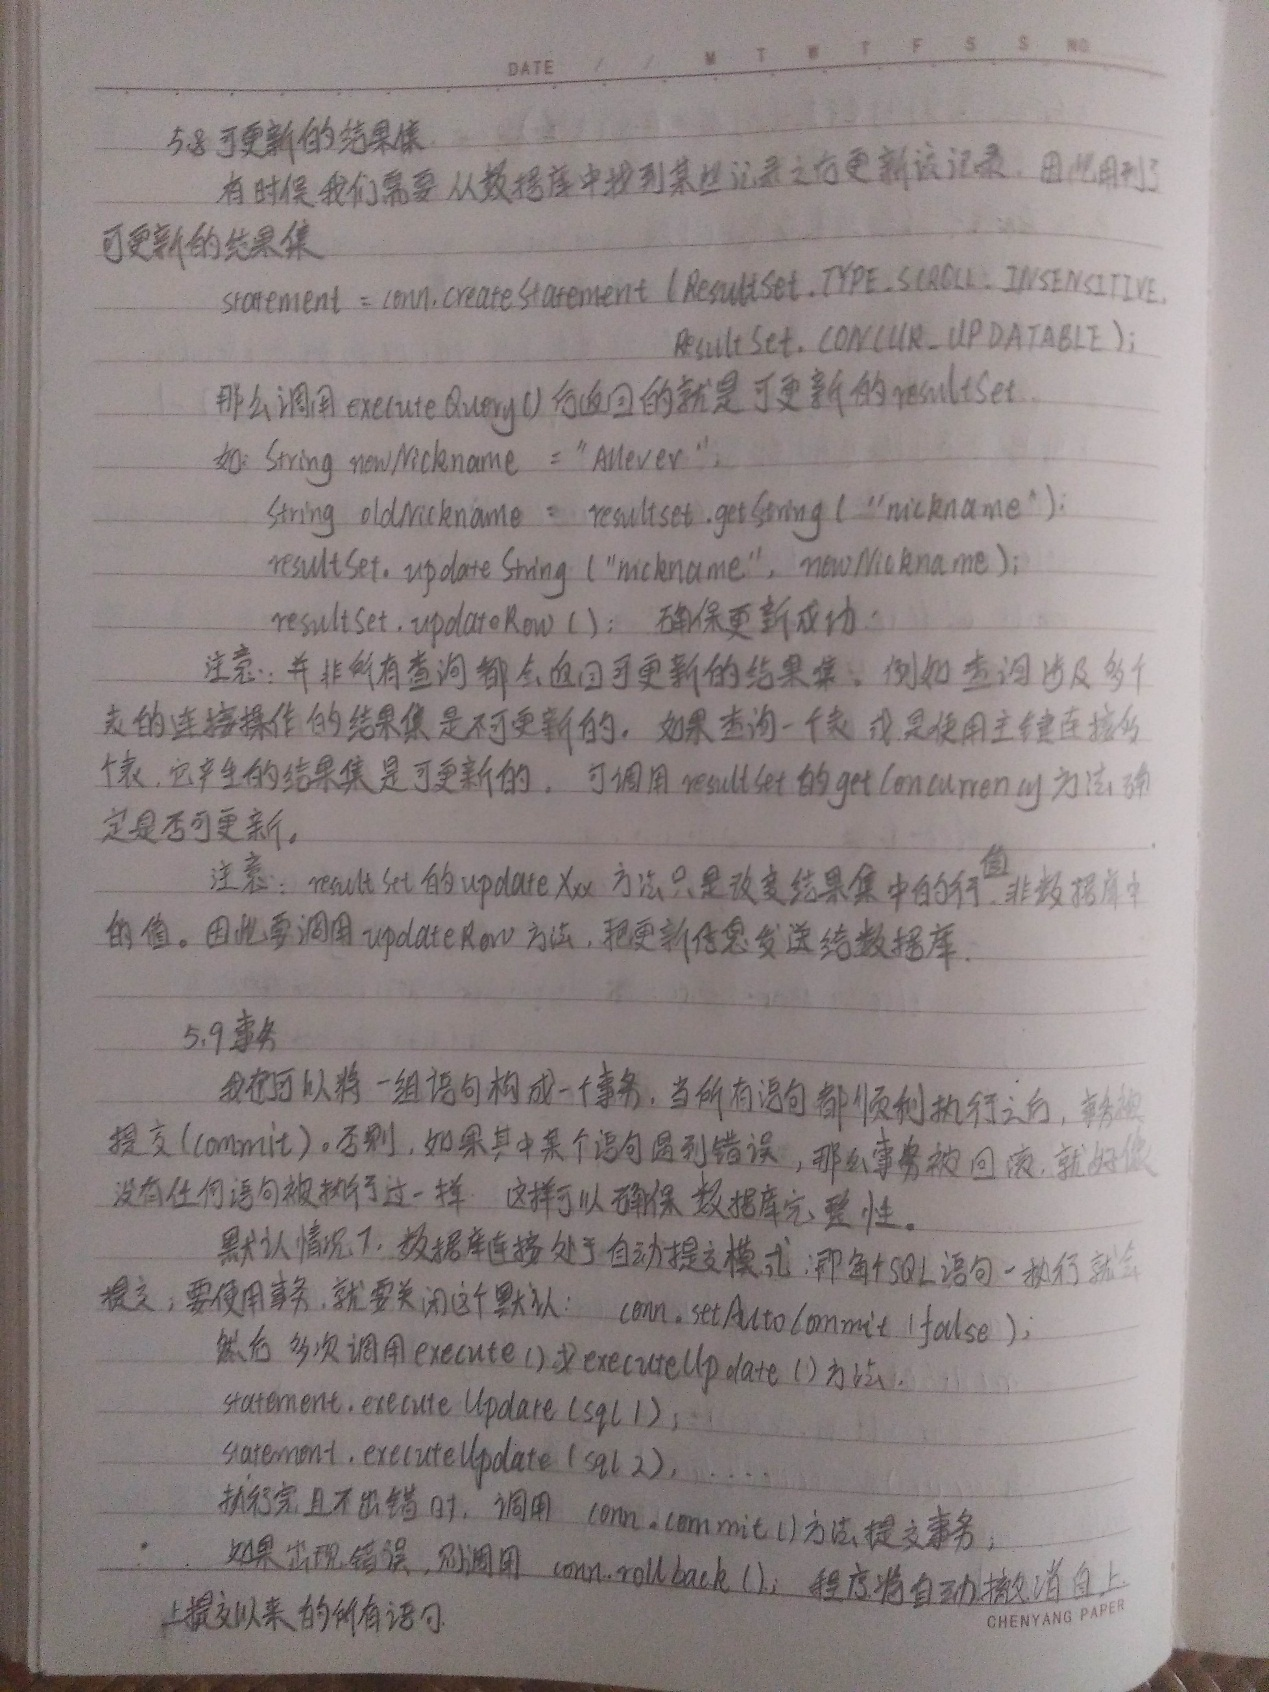 DATE / / M T W T F S S NO
5.8 可更新的结果集
有时候我们需要从数据库中找到某些记录之后更新该记录，因此用到了
可更新的结果集
statement = conn.createStatement (ResultSet.TYPE_SCROLL_INSENSITIVE,
ResultSet.CONCUR_UPDATABLE);
那么调用executeQuery()后返回的就是可更新的resultSet
如: String newNickname = "Allever";
String oldNickname = resultset.getString( "nickname");
resultSet.updateString ("nickname", newNickname);
resultSet.updateRow (); 确保更新成功.
注意: 并非所有查询都会返回可更新的结果集。例如查询涉及多个
表的连接操作的结果集是不可更新的。如果查询一个表或是使用主键连接多
个表,它产生的结果集是可更新的。可调用resultSet的getConcurrency方法确
定是否可更新。
注意: resultSet的updateXxx方法只是改变结果集中的行值,非数据库中
的值。因此要调用updateRow方法,把更新信息发送给数据库.
5.9 事务
我们可以将一组语句构成一个事务,当所有语句都顺利执行之后,事务被
提交(commit)。否则,如果其中某个语句遇到错误,那么事务被回滚,就好像
没有任何语句被执行过一样. 这样可以确保数据库完整性。
默认情况下,数据库连接处于自动提交模式,即每个SQL语句一执行就会
提交,要使用事务,就要关闭这个默认: conn.setAutoCommit (false);
然后多次调用execute()或executeUpdate()方法.
statement.executeUpdate(sql1);
statement.executeUpdate(sql2), ....
执行完且不出错时,调用 conn.commit()方法提交事务;
如果出现错误,则调用 conn.rollback(); 程序将自动撤消自上
上提交以来的所有语句.
CHENYANG PAPER